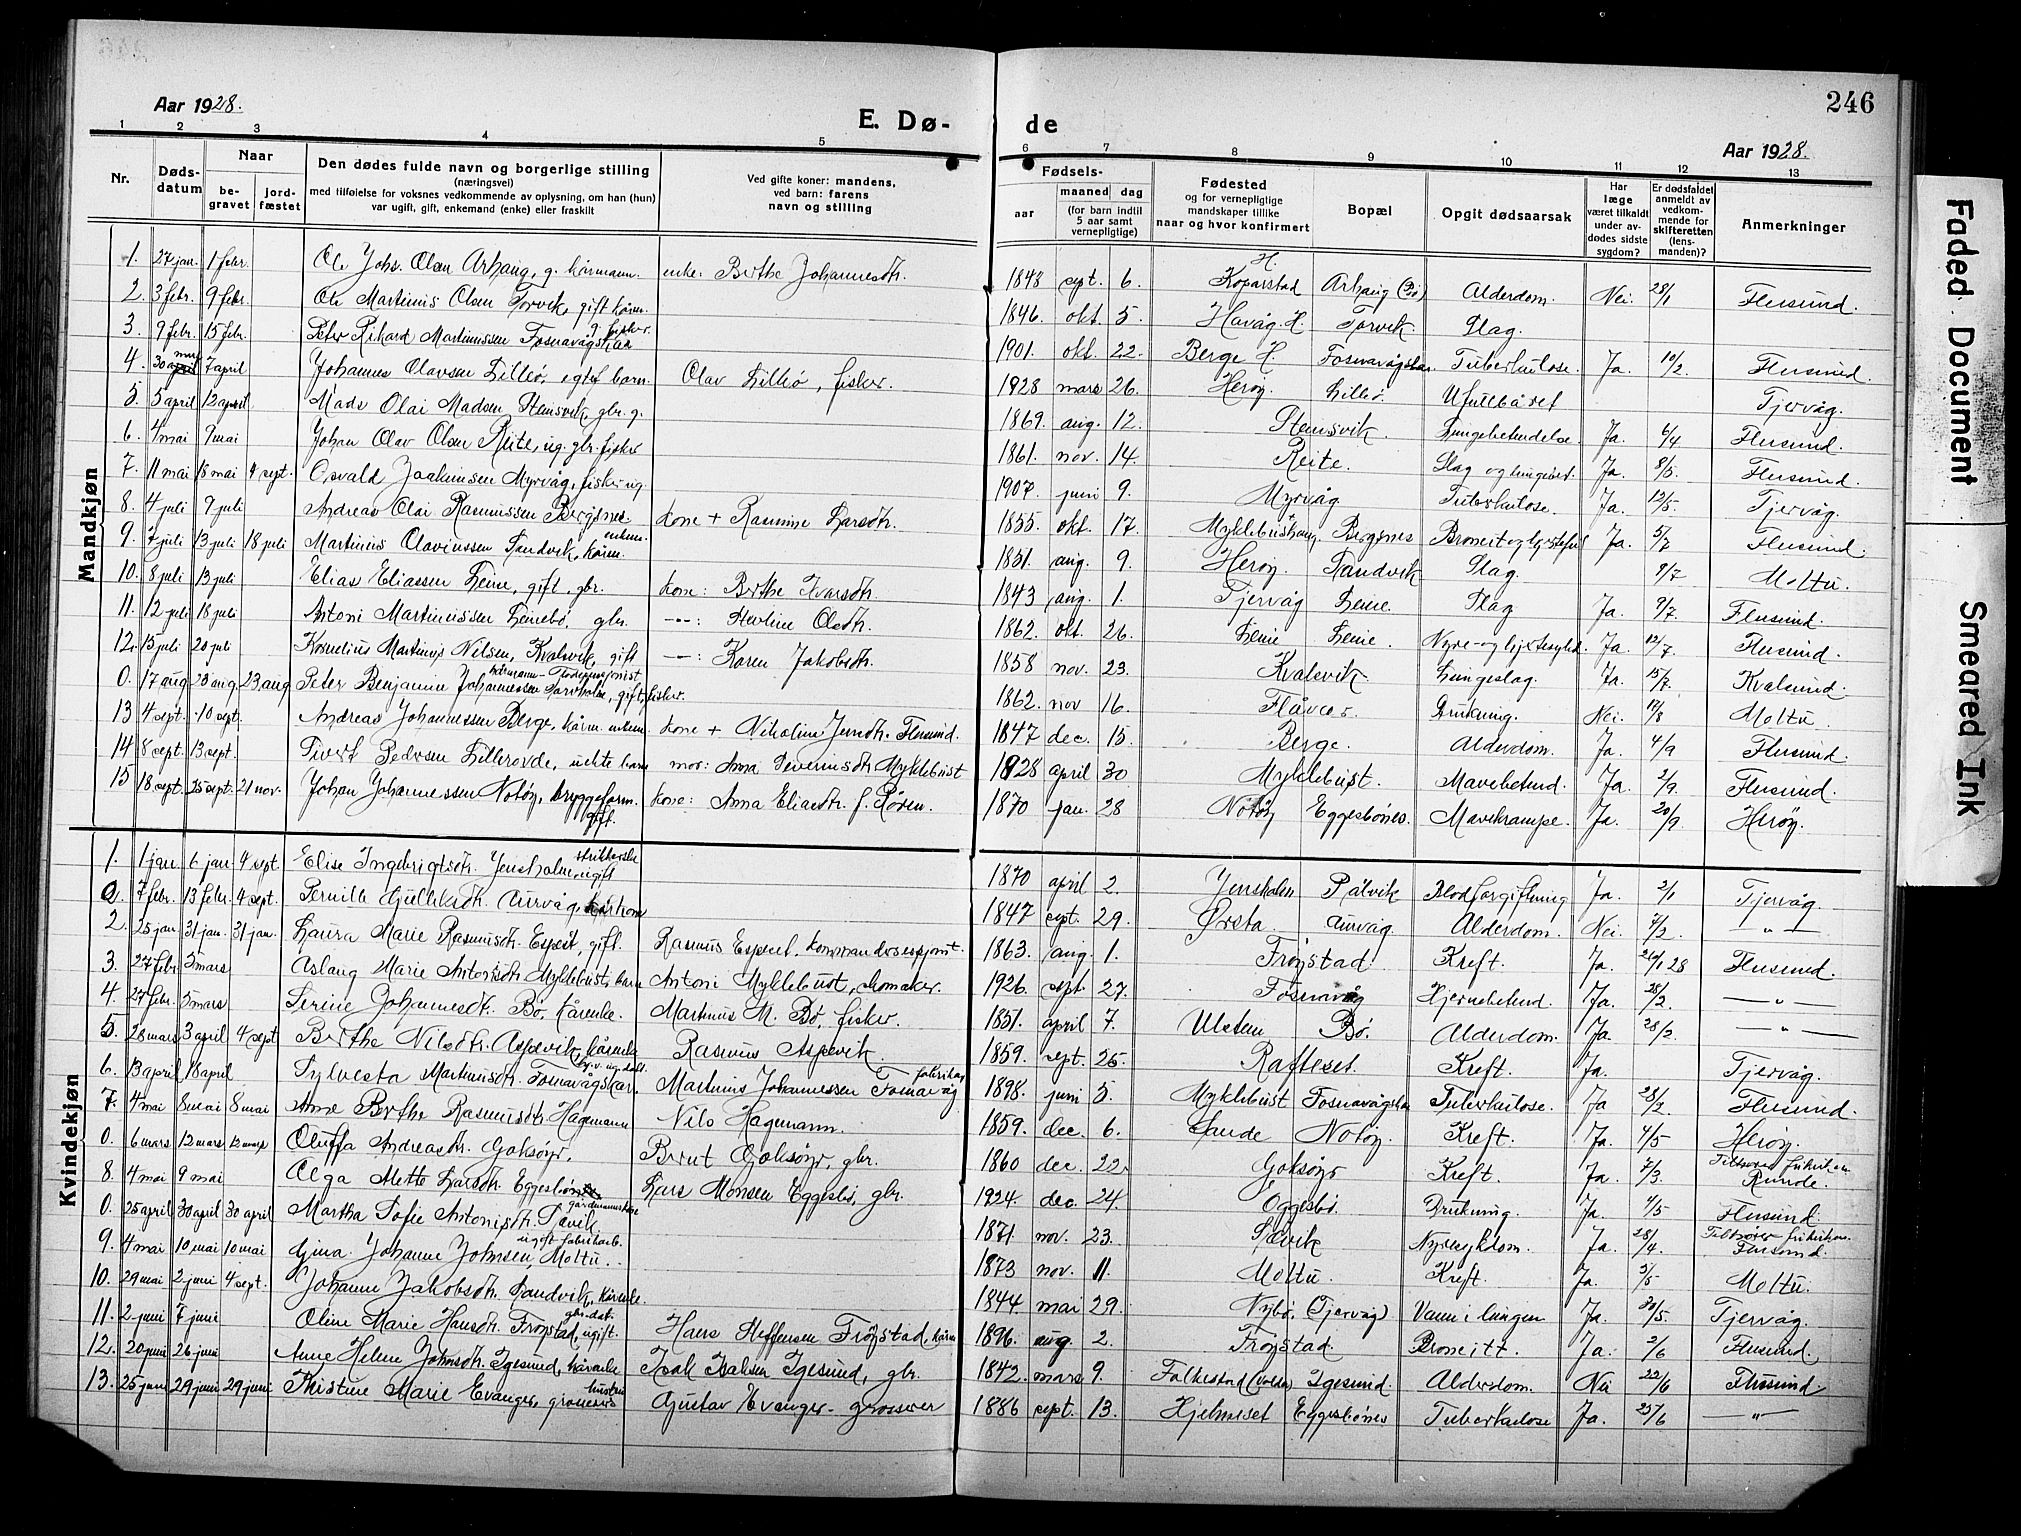 246
Aar 1928.
E. Dø- de
Aar 1928.
1 2 3 4 5 6 7 8 9 10 11 12 13
Nr.
Døds-
datum
Naar
be-
gravet
jord-
fæstet
Den dødes fulde navn og borgerlige stilling
(næringsvei)
med tilføielse for voksnes vedkommende av oplysning, om han (hun)
var ugift, gift, enkemand (enke) eller fraskilt
Ved gifte koner: mandens,
ved barn: farens
navn og stilling
Fødsels-
aar
maaned dag
(for barn indtil
5 aar samt
vernepligtige)
Fødested
og for vernepligtige
mandskaper tillike
naar og hvor konfirmert
Bopæl
Opgit dødsaarsak
Har
læge
været tilkaldt
under av-
dødes sidste
sygdom?
Er dødsfaldet
anmeldt av
vedkom-
mende for
skifteretten
(lens-
manden)?
Anmerkninger
Mandkjøn
1. 27 jan. 1 febr. Ole Johs. Olsen Arhaug, g. kårmann. enke: Berthe Johannesdtr. 1848 sept. 6. H. Koparstad Arhaug (Bø) Alderdom. Nei. 28/1 Flusund.
2. 3 febr. 9 febr. Ole Martinus Olsen Torvik, gift kårm. 1846. okt. 5. Havåg. H Torvik. Slag.
3. 9 febr. 15 febr. Peter Rikard Martinussen Fosnavågskar g. fisker. 1901. okt. 22. Berge H Fosnavågskar. Tuberkulose. Ja. 10/2. Flusund.
4. 30 mars 7 april Johannes Olavsen Lilleø, egtef. barn. Olav Lilleø, fisker. 1928 mars 26. Herøy Lilleø. Ufullbåret Tjervåg.
5. 5 april 12 april Mads Olai Madsen Stemsvik, gbr. g. 1869. aug. 12. Stemsvik. Lungebetendelse Ja. 6/4 Flusund.
6. 4 mai 9 mai Johan Olav Olsen Reite, ug. gbr. fisker 1861. nov. 14. Reite. Slag og lungebet. Ja. 8/5. Flusund.
7. 11 mai 18 mai 4 sept. Osvald Joakimsen Myrvåg, fisker ug. 1907. juni 9. Myrvåg Tuberkulose. Ja. 12/5. Tjervåg.
8. 4 juli 9 juli Andreas Olai Rasmussen Bergsnes. kone + Rasmine Larsdtr. 1855. okt. 17. Myklebusthaug Bergsnes Bronkit og hjertefeil Ja. 5/7 Flusund.
9. 7 juli 13 juli 18 juli Martinus Olavinssen Sandvik, kårm. enkem. 1851. aug. 9. Herøy Sandvik Slag. 9/7 Moltu.
10. 8 juli 13 juli Elias Eliassen Leine, gift, gbr. kone: Berthe Ivarsdtr. 1843 aug. 1. Tjervåg Leine. Slag Ja. 9/7. Flusund.
11. 12 juli 18 juli Antoni Martinussen Leinebø, gbr. —"—: Hevline Olsdtr. 1862. okt. 26. Leine Leine. Nyre- og hjertesykd. Ja. 12/7 Flusund.
12. 15 juli 20 juli Kornelius Martinus Nilsen, Kvalsvik, gift —"—: Karen Jakobsdtr. 1858 nov. 23. Kvalsvik Lungeslag. Ja. 15/7. Kvalsund.
0. 17 aug. 23 aug. 23 aug Peter Benjamin Johannessen Torvholm, gift, fisker. 1862. nov 16. Flåvær Drukning. Nei. 18/8 Moltu.
13 4 sept. 10 sept. Andreas Johannessen Berge, kårm. enkem. kone + Nikoline Jensdtr. Flusund. 1847 dec. 15. Berge. Alderdom. Ja. 4/9 Flusund.
14 8 sept. 13 sept. Sivert Pedersen Lillerovde, uekte barn mor: Anna Severinsdtr. Myklebust 1928 april 30 Myklebust. Mavebetend. Ja. 2/9. Flusund.
15 18 sept. 25 sept. 21 nov. Johan Johannessen Notøy, bryggeform. gift. kone: Anna Eliasdtr. f. Røren. 1870 jan. 28 Notøy Eggesbønes. Mavekrampe. Ja. 20/9. Herøy.
Kvindekjøn
1. 1 jan. 6 jan. 4 sept. Elise Ingebrigtsdtr. Jensholm, ugift 1870 april 2. Jensholm Pålvik Blodforgiftning Ja. 2/1 Tjervåg.
0. 7 febr. 13 febr. 4 sept. Pernille Gulliksdtr. Aurvåg, kårkone 1847 sept. 29. Ørsta. Aurvåg Alderdom. Nei. 7/2 —"—
2. 25 jan 31 jan. 31 jan. Laura Marie Rasmusdtr. Espset, gift. Rasmus Espset. 1863. aug. 1. Frøystad Kreft. Ja. 26/1 28 Flusund.
3. 27 febr. 5 mars Aslaug Marie Antonsdtr. Myklebust, barn Antoni Myklebust, skomaker. 1926. sept. 27. Fosnavåg Hjernebetend. Ja. 28/2. —"—
4. 27 febr. 5 mars Serine Johannesdtr. Bø, kårenke. Martinus M. Bø, fisker. 1851. april 7. Ulstein Bø. Alderdom. Ja. 28/2. —"—
5. 28 mars 3 april 4 sept Berthe Nilsdtr. Aspevik, kårenke Rasmus Aspevik. 1859. sept. 25. Rafteset. Kreft. Ja. Tjervåg.
6. 13 april 18 april Sylvesta Martinusdtr. Fosnavågskar. Martinus Johannessen Fosnavåg 1898. juni 5. Myklebust Fosnavågskar Tuberkulose. Ja 28/2. Flusund.
7. 4 mai 8 mai 8 mai Anne Berthe Rasmusdtr. Hagemann Nils Hagemann. 1859. dec. 6. Sande Notøy. Kreft. Ja. 4/5 Herøy.
0. 6 mars 12 mars 12 mars Oluffa Andreasdtr. Goksøyr. Bernt Goksøyr, gbr. 1860 dec. 22. Goksøyr Kreft. Ja. 7/3. Tilhører frikirken Runde.
8. 4 mai 9 mai Olga Mette Larsdtr. Eggesbø Lars Monsen Eggesbø, gbr. 1924. dec. 24. Eggesbø. Drukning. Ja. 4/5 Flusund
0. 25 april 30 april 30 april Martha Sofie Antonsdtr. Sævik 1871. nov. 23. Sævik Nyresykdom. Ja. 28/4. Tilhører frikirken. Flusund.
9. 4 mai 10 mai 10 mai Gina Johanne Johnsen, Moltu. ugift fabrikarb. 1873 nov. 11. Moltu. Kreft. Ja. 5/5 Moltu.
10. 29 mai 2 juni 4 sept. Johanne Jakobsdtr. Sandvik, kårenke. 1844. mai 29. Nybø, (Tjervåg) Vann i lungen Ja. 30/5. Tjervåg.
11. 2 juni 7 juni Oline Marie Hansdtr. Frøystad, ugift. gbr. dat. Hans Steffensen Frøystad, kårm 1896. aug 2. Frøystad. Bronkitt. Ja. 2/6 Flusund.
12. 20 juni 26 juni Anne Helene Johnsdtr. Igesund, kårenke Isak Isaksen Igesund, gbr. 1842. mars 9. Folkestad (Volda) Igesund. Alderdom. Nei 22/6 Flusund
13. 25 juni 29 juni 29 juni Kristine Marie Evanger, grosserers hustru Gustav Evanger - grosserer 1886 sept. 13. Hjelmeset Eggesbønes Tuberkulose Ja. 25/6 —"—
Faded Document
Smeared Ink